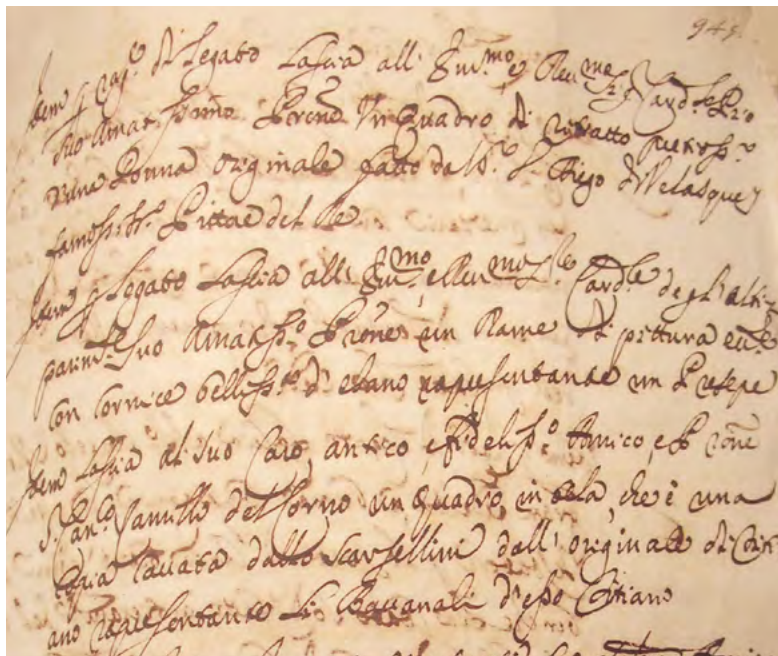 945.
Item p cag.e di legato Lascia all' Em.mo e Reu.me Sig. Card.le Pio
suo Amatissimo Prone Un Quadro di ritratto
d'una Donna originale fatto dal S.r D. Diego di Velasquez
famosiss.o Pittore del Re
Item p legato Lascia all' Em.mo e Reu.mo S.le Card.le degl' Alti-
parim.te suo Amatiss.o Prone un Rame di pittura
con Cornice belliss.ma d'ebano rapresentante un Presepe
Item Lascia al suo Caro, antico, e fideliss.o Amico, e Prone
S. Can.co Camillo del Corno un quadro in tela, che è una
Copia Cauata dallo Scarsellini dall' originale di Titi-
ano rapresentante Li Baccanali d'esso Titiano